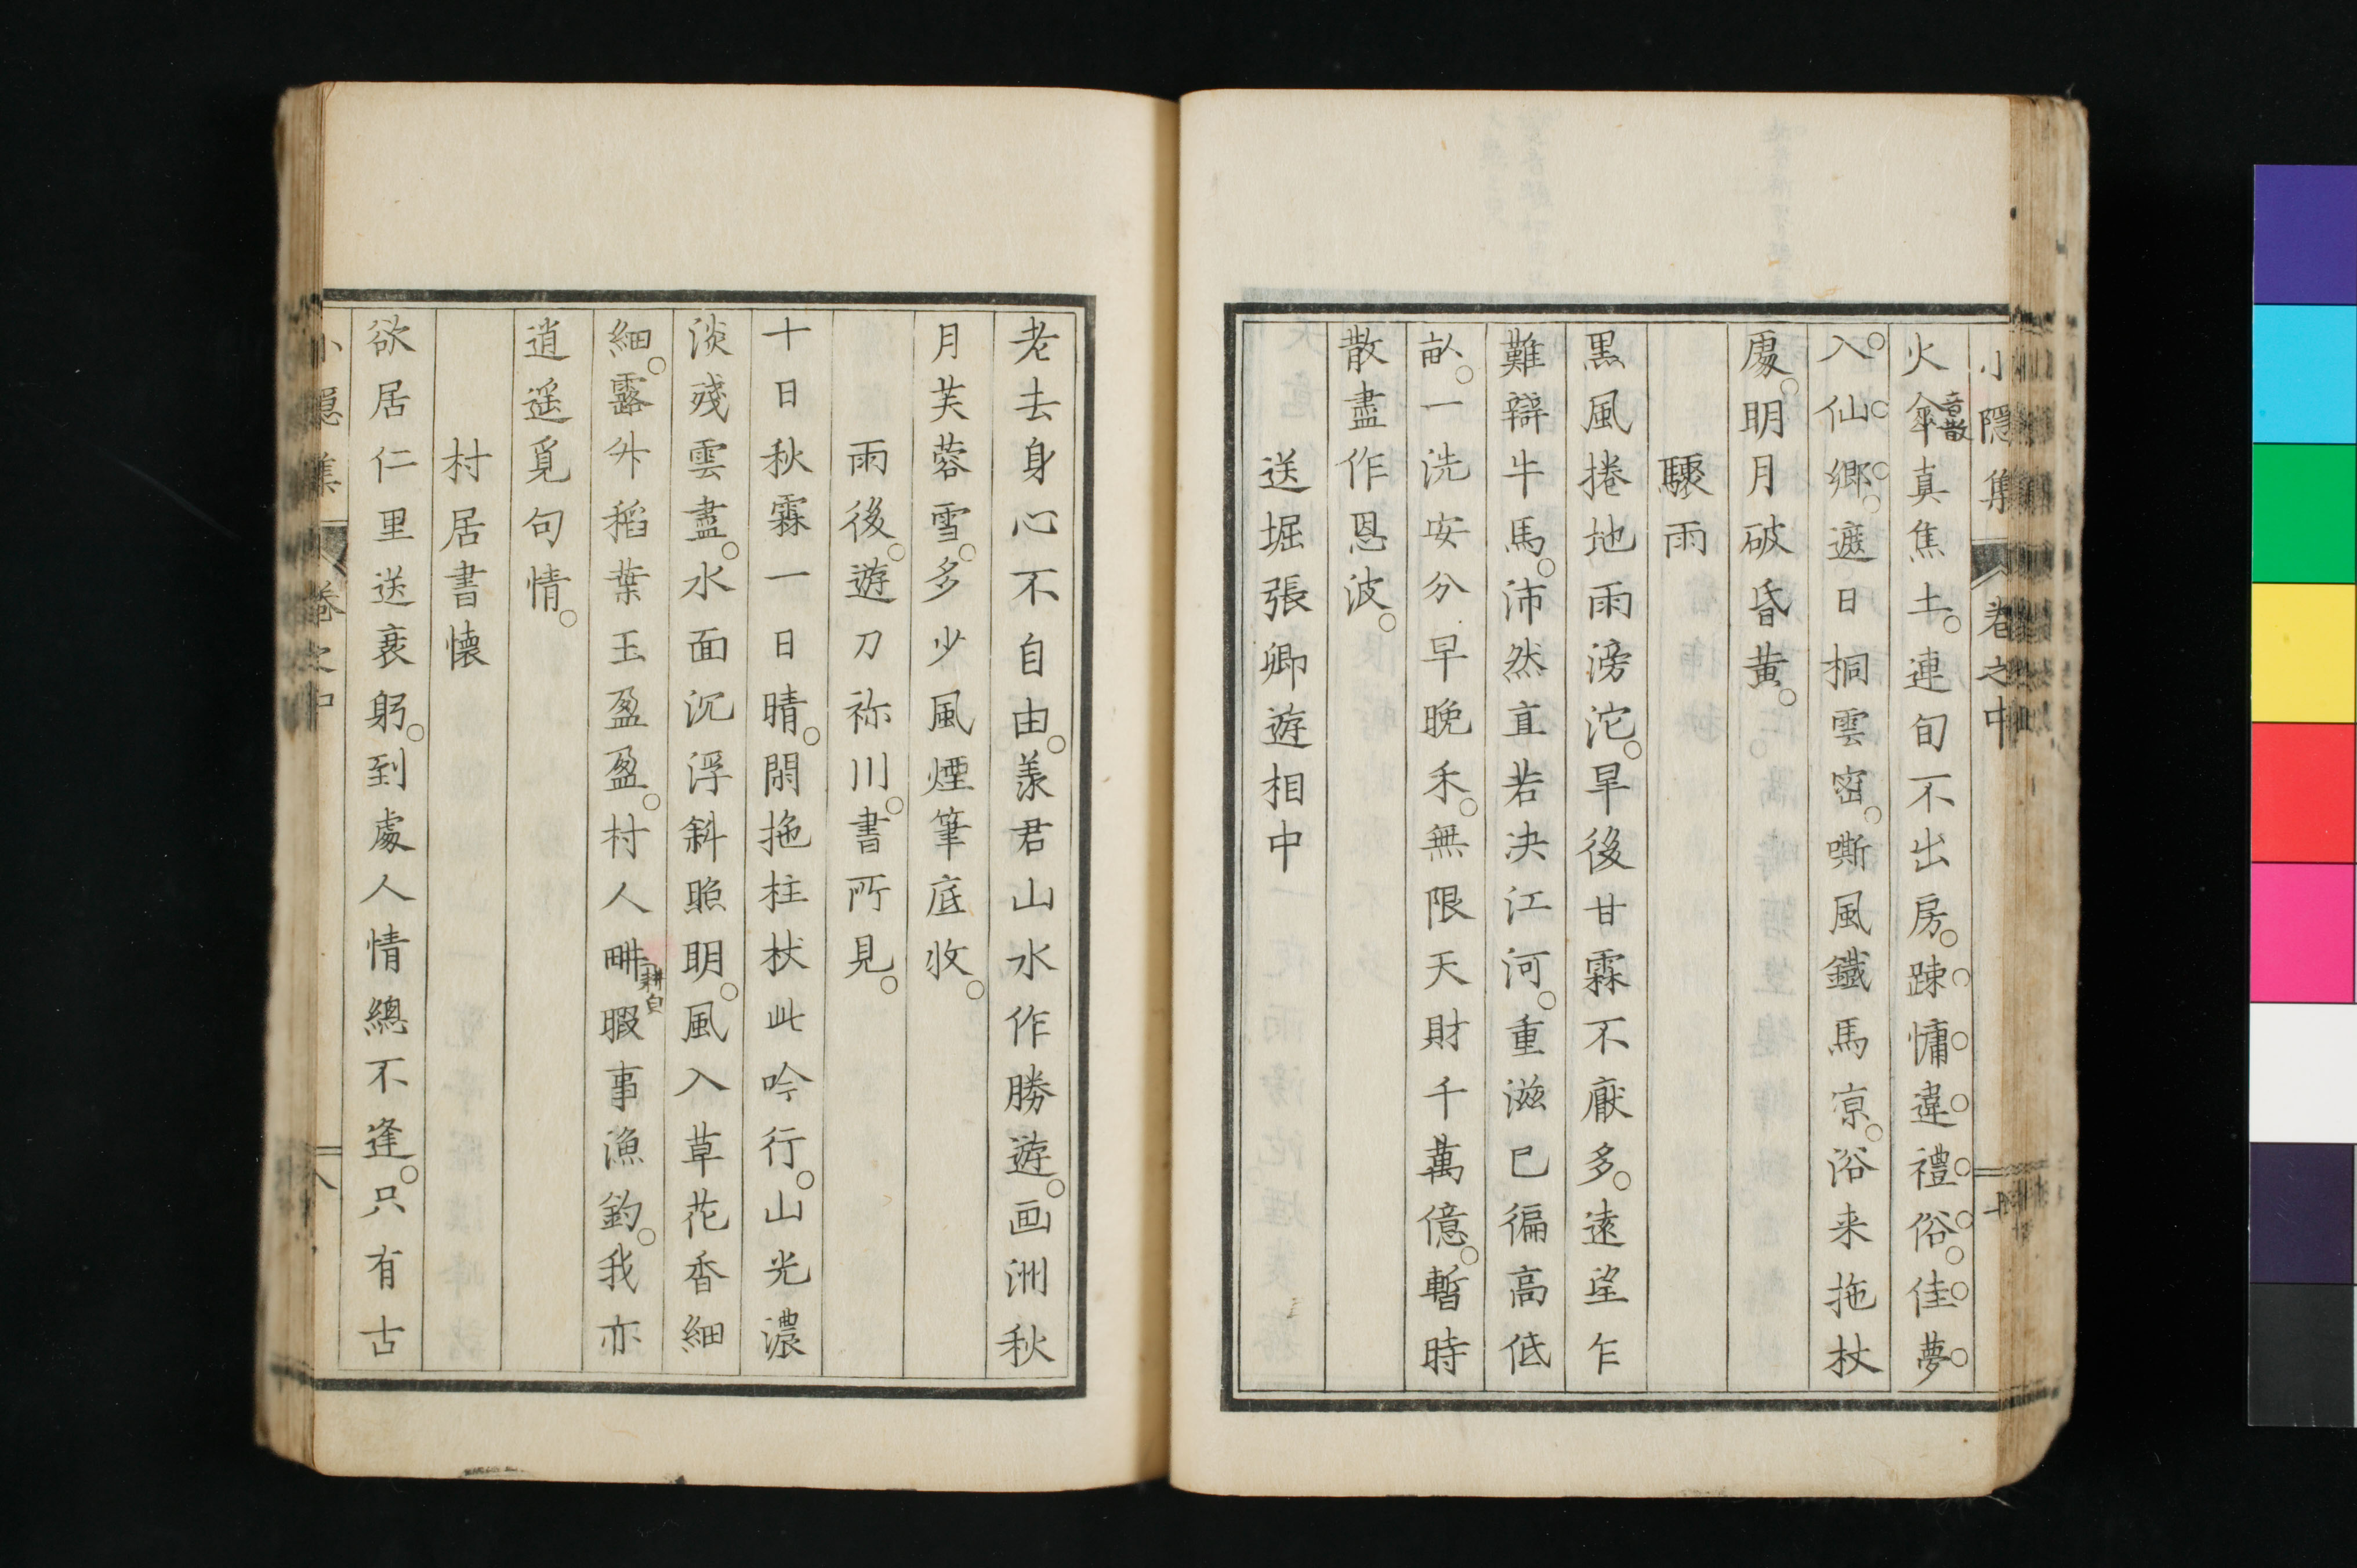 小隱集 卷之中
火傘真焦土。連旬不出房。踈慵違禮俗。佳夢
音散
入仙鄉。遮日桐雲密。嘶風鐵馬凉。浴来拖杖
處。明月破昏黄。
驟雨
黒風捲地雨滂沱。旱後甘霖不厭多。遠望乍
難辯牛馬。沛然直若决江河。重滋已徧高低
畝。一洗安分早晚禾。無限天財千萬億。暫時
散盡作恩波。
送堀張卿遊相中
老去身心不自由。羨君山水作勝遊。画洲秋
月芙蓉雪。多少風煙筆底收。
雨後。遊刀祢川。書所見。
十日秋霖一日晴。閑拖柱杖此吟行。山光濃
淡殘雲盡。水面沉浮斜照明。風入草花香細
細。露外稻葉玉盈盈。村人畊暇事漁釣。我亦
耕白
逍遥覓句情。
村居書懐
欲居仁里送衰躬。到處人情總不逢。只有古
小隱集 卷之中 八